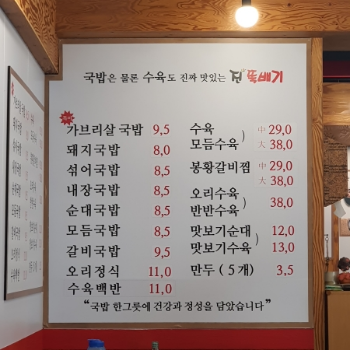 국밥은 물론 수육도 진짜 맛있는 진뚝배기
가브리살국밥 9,5
돼지국밥 8,0
섞어국밥 8,5
내장국밥 8,5
순대국밥 8,5
모듬국밥 8,5
갈비국밥 9,5
오리정식 11,0
수육백반 11,0
수육 모듬수육 ) 中 29,0 大 38,0
봉황갈비찜 中 29,0 大 38,0
오리수육 반반수육 ) 38,0
맛보기순대 12,0
맛보기수육 ) 13,0
만두 ( 5 개 ) 3.5
"국밥 한그릇에 건강과 정성을 담았습니다"